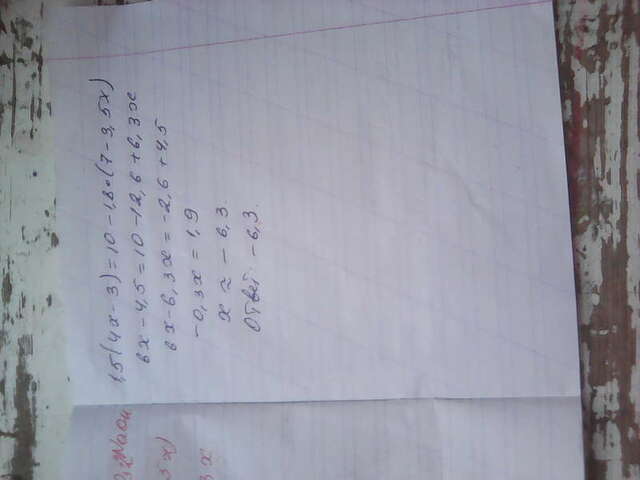 1,5(4x-3)=10-1,8·(7-3,5x)
6x-4,5=10-12,6+6,3x
6x-6,3x=-2,6+4,5
-0,3x=1,9
x≈-6,3.
Ответ: -6,3.
5x)
3x